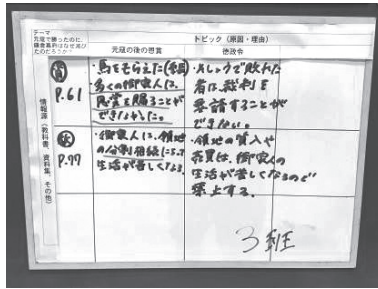 テーマ
元寇で勝ったのに、
鎌倉幕府はなぜ滅び
たのだろうか？
トピック（原因・理由）
元寇の後の恩賞
徳政令
情報源（教科書、資料集、その他）
P.61
・馬をそろえた(季長)
多くの御家人は、
恩賞を賜ることが
できなかった。
・敗れた
者は、裁判を
要請することが
できない。
P.77
・御家人は、領地
の分割相続によって
生活が苦しくなる。
・領地の質入や
売買は、御家人の
生活が苦しくなるので
禁止する。
3班